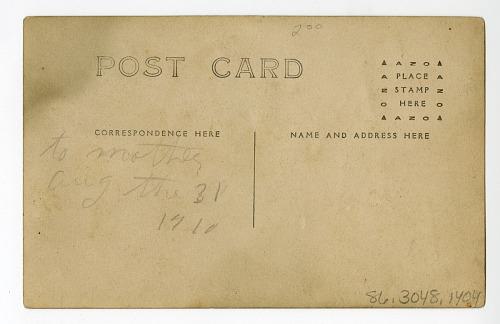 200
POST CARD
▲ A N O ▲
PLACE
STAMP
HERE
▲ A N O ▲
CORRESPONDENCE HERE
NAME AND ADDRESS HERE
to mother
aug the 31
1910
86.3048.1404